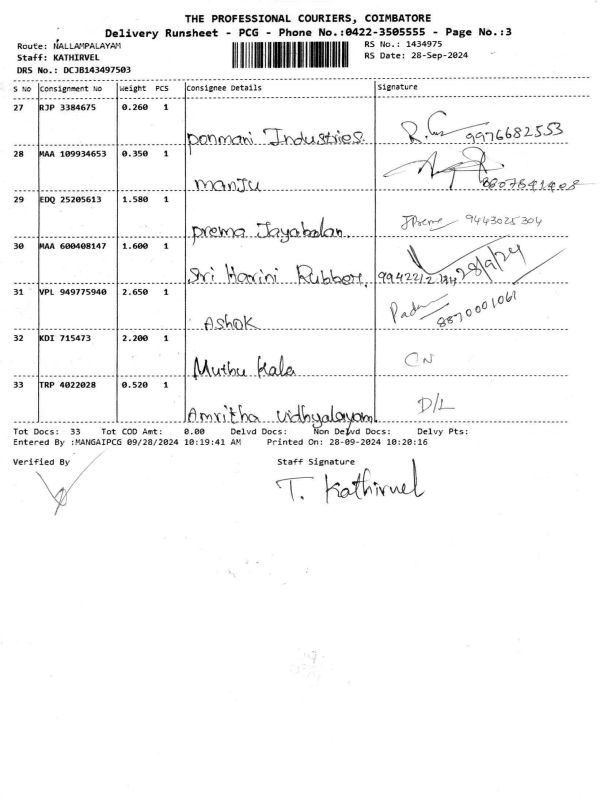 THE PROFESSIONAL COURIERS, COIMBATORE
Delivery Runsheet - PCG - Phone No.:0422-3505555 - Page No.:3
Route: NALLAMPALAYAM RS No.: 1434975
Staff: KATHIRVEL RS Date: 28-Sep-2024
DRS No.: DCJB143497503
S No Consignment No Weight PCS Consignee Details Signature
27 RJP 3384675 0.260 1
ponmani Industries. 9976682553
28 MAA 109934653 0.350 1
manju
29 EDQ 25205613 1.580 1
prema Jayabalan. 9443025304
30 MAA 600408147 1.600 1
Sri Harini Rubber. 28/9/24
31 VPL 949775940 2.650 1
Ashok 8870001061
32 KDI 715473 2.200 1
Muthu kala
33 TRP 4022028 0.520 1
Amritha vidhyalayam. D/L
Tot Docs: 33 Tot COD Amt: 0.00 Delvd Docs: Non Delvd Docs: Delvy Pts:
Entered By :MANGAIPCG 09/28/2024 10:19:41 AM Printed On: 28-09-2024 10:20:16
Verified By Staff Signature
T. Kathirvel